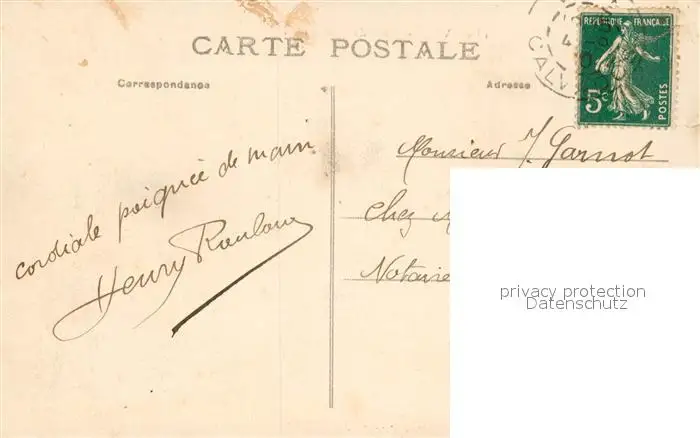 CARTE POSTALE
Correspondance
Adresse
REPUBLIQUE FRANÇAISE
5c
POSTES
CALV
cordiale poignée de main
Henry
Monsieur J. Garnot
chez M
Notaire
privacy protection
Datenschutz